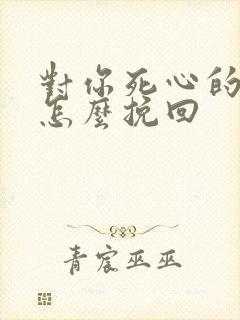 對你死心的
怎麼挽回
青宸巫巫